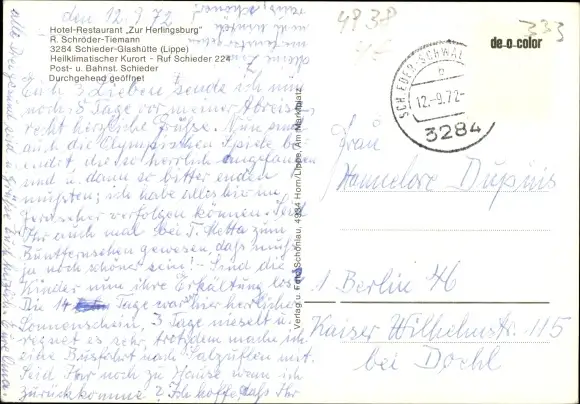 den 12.9.72
Hotel-Restaurant „Zur Herlingsburg"
R. Schröder-Tiemann
3284 Schieder-Glashütte (Lippe)
Heilklimatischer Kurort - Ruf Schieder 224
Post- u. Bahnst. Schieder
Durchgehend geöffnet
Euch 3 Lieben sende ich nun
noch 5 Tage vor meiner Abreise
recht herzliche Grüße. Nun sind
auch die Olympischen Spiele be-
endet die so herrlich angefangen
und u. dann so bitter enden
mußten; ich habe alles hier im
Fernseher verfolgen können. Seid
Ihr auch mal bei T. Metta zum
Buntfernsehen gewesen, daß muß
ja noch schöner sein! - Sind die
Kinder nun ihre Erkältung los?
Die 14 Tage war hier herrlicher
Sonnenschein, 3 Tage nieselt u.
regnet es sehr, trotzdem mache ich
eine Busfahrt nach Salzuflen mit.
Seid Ihr noch zu Hause wenn ich
zurückkomme? Ich hoffe, daß Ihr
Verlag u. Foto Schönlau, 4934 Horn/Lippe, Am Marktplatz
4938
333
de-o-color
SCHIEDER-SCHWAL
12.-9.72
3284
Frau
Hannelore Dupuis
1 Berlin 46
Kaiser Wilhelmstr. 115
bei Dochl